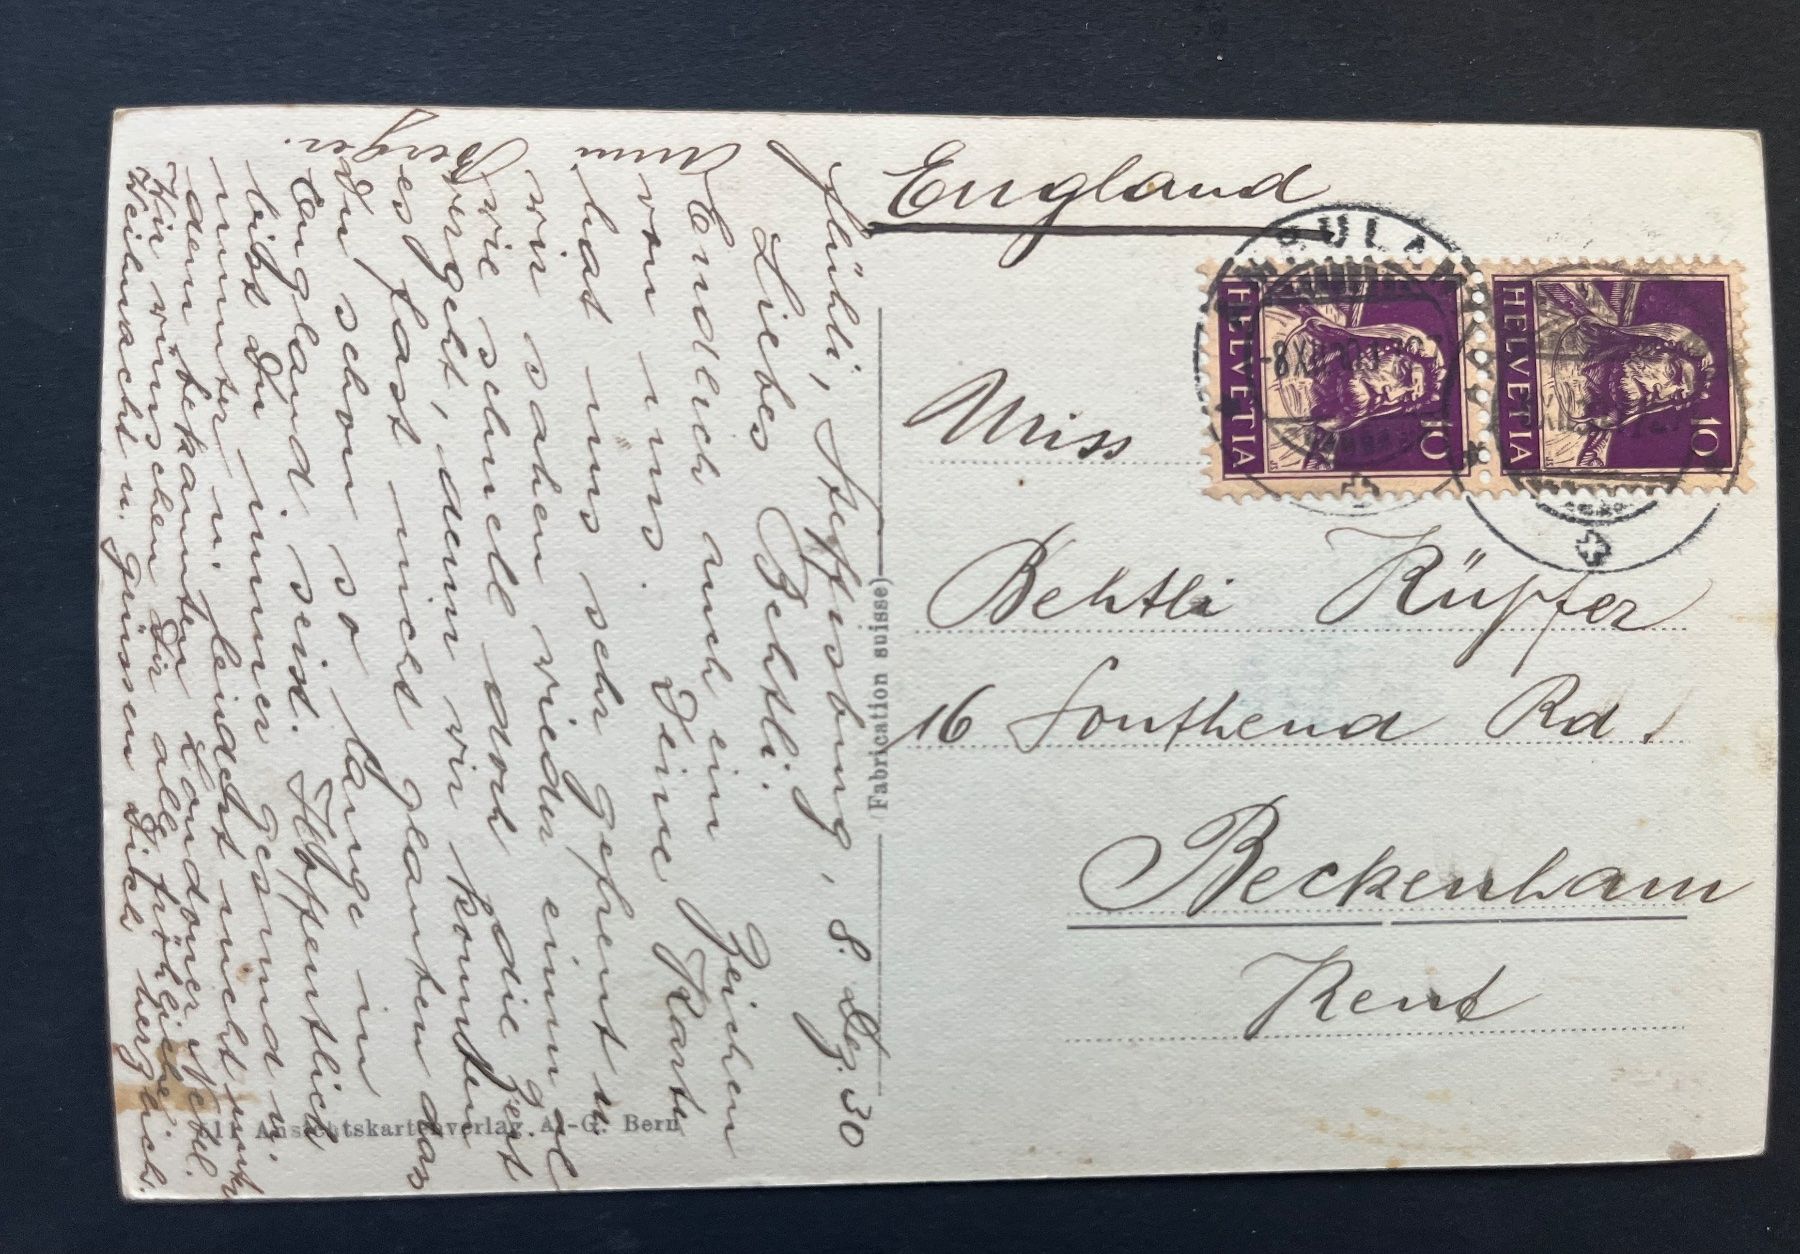 England
HELVETIA 10
HELVETIA 10
-8.XII.30
Miss
Behtli Küpfer
16 Southend Rd.
Beckenham
Kent
(Fabrication suisse)
Ansichtskartenverlag A.-G. Bern
Flühli, Steffisburg, 8. Dez. 30
Liebes Behtli!
Endlich auch ein Zeichen
von uns. Deine Karte
hat uns sehr gefreut u.
wir sahen wieder einmal
wie schnell doch die Zeit
vergeht, denn wir konnten
es fast nicht glauben das
Du schon so lange in
England seist. Hoffentlich
bist Du immer gesund u.
munter u. leidest nicht unter
dem bekannten Londoner Nebel.
Wir wünschen Dir alle fröhliche
Weihnacht u. grüssen Dich herzlich.
Berger.